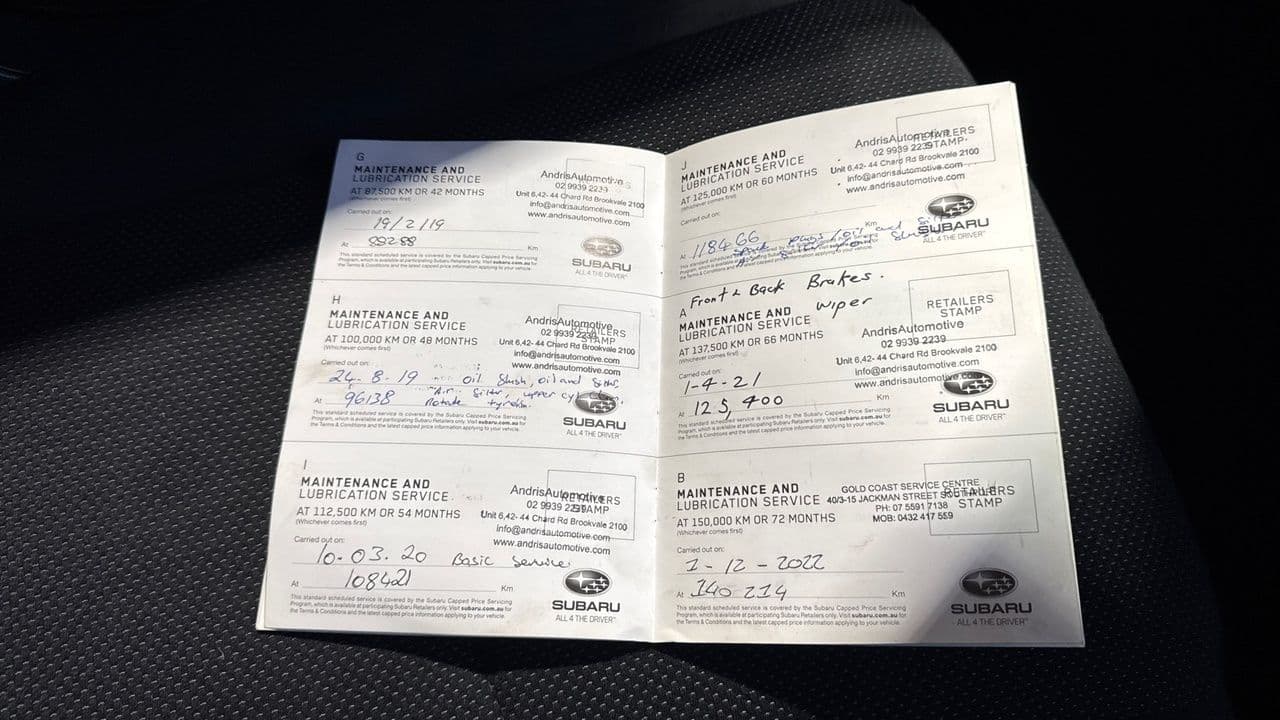 G
MAINTENANCE AND
LUBRICATION SERVICE
AT 87,500 KM OR 42 MONTHS
(Whichever comes first)
Carried out on:
19/2/19
At 88288 Km
This standard scheduled service is covered by the Subaru Capped Price Servicing
Program, which is available at participating Subaru Retailers only. Visit subaru.com.au for
the Terms & Conditions and the latest capped price information applying to your vehicle.
AndrisAutomotive
02 9939 2239
Unit 6,42- 44 Chard Rd Brookvale 2100
info@andrisautomotive.com
www.andrisautomotive.com
SUBARU
ALL 4 THE DRIVER
H
MAINTENANCE AND
LUBRICATION SERVICE
AT 100,000 KM OR 48 MONTHS
(Whichever comes first)
Carried out on:
24.8.19 oil flush, oil and filter,
Air filter, upper
At 96138 Rotate tyres.
This standard scheduled service is covered by the Subaru Capped Price Servicing
Program, which is available at participating Subaru Retailers only. Visit subaru.com.au for
the Terms & Conditions and the latest capped price information applying to your vehicle.
RETAILERS
STAMP
AndrisAutomotive
02 9939 2239
Unit 6,42- 44 Chard Rd Brookvale 2100
info@andrisautomotive.com
www.andrisautomotive.com
SUBARU
ALL 4 THE DRIVER
I
MAINTENANCE AND
LUBRICATION SERVICE
AT 112,500 KM OR 54 MONTHS
(Whichever comes first)
Carried out on:
10.03.20 Basic Service
At 108421 Km
This standard scheduled service is covered by the Subaru Capped Price Servicing
Program, which is available at participating Subaru Retailers only. Visit subaru.com.au for
the Terms & Conditions and the latest capped price information applying to your vehicle.
RETAILERS
STAMP
AndrisAutomotive
02 9939 2239
Unit 6,42- 44 Chard Rd Brookvale 2100
info@andrisautomotive.com
www.andrisautomotive.com
SUBARU
ALL 4 THE DRIVER
J
MAINTENANCE AND
LUBRICATION SERVICE
AT 125,000 KM OR 60 MONTHS
(Whichever comes first)
Carried out on:
At 118466 Km
plugs/oil and filter
This standard scheduled service is covered by the Subaru Capped Price Servicing
Program, which is available at participating Subaru Retailers only. Visit subaru.com.au for
the Terms & Conditions and the latest capped price information applying to your vehicle.
RETAILERS
STAMP
AndrisAutomotive
02 9939 2239
Unit 6,42- 44 Chard Rd Brookvale 2100
info@andrisautomotive.com
www.andrisautomotive.com
SUBARU
ALL 4 THE DRIVER
Front & Back Brakes.
wiper
A
MAINTENANCE AND
LUBRICATION SERVICE
AT 137,500 KM OR 66 MONTHS
(Whichever comes first)
Carried out on:
1-4-21
At 125,400 Km
This standard scheduled service is covered by the Subaru Capped Price Servicing
Program, which is available at participating Subaru Retailers only. Visit subaru.com.au for
the Terms & Conditions and the latest capped price information applying to your vehicle.
RETAILERS
STAMP
AndrisAutomotive
02 9939 2239
Unit 6,42- 44 Chard Rd Brookvale 2100
info@andrisautomotive.com
www.andrisautomotive.com
SUBARU
ALL 4 THE DRIVER
B
MAINTENANCE AND
LUBRICATION SERVICE
AT 150,000 KM OR 72 MONTHS
(Whichever comes first)
Carried out on:
1-12-2022
At 140214 Km
This standard scheduled service is covered by the Subaru Capped Price Servicing
Program, which is available at participating Subaru Retailers only. Visit subaru.com.au for
the Terms & Conditions and the latest capped price information applying to your vehicle.
RETAILERS
STAMP
GOLD COAST SERVICE CENTRE
40/3-15 JACKMAN STREET
PH: 07 5591 7138
MOB: 0432 417 559
SUBARU
ALL 4 THE DRIVER